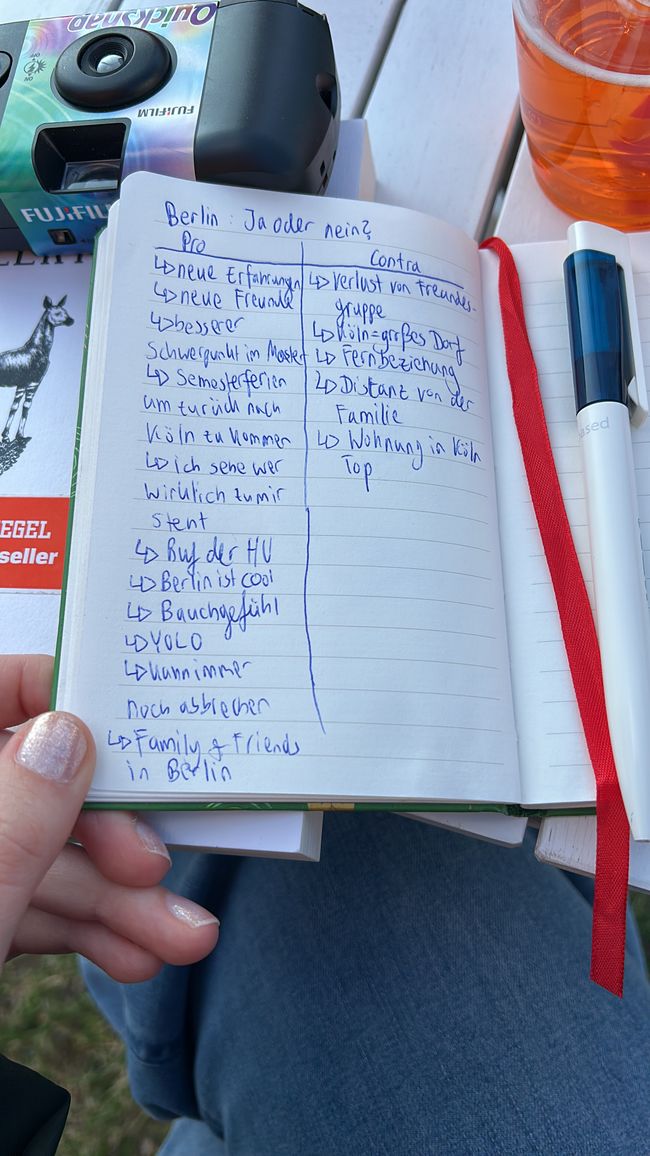 QuickSnap
OFF
ON
FUJIFILM
FUJIFIL
EGEL
seller
Berlin: Ja oder nein?
Pro
↳ neue Erfahrungen
↳ neue Freunde
↳ besserer
Schwerpunkt im Master
↳ Semesterferien
um zurück nach
Köln zu kommen
↳ ich sehe wer
wirklich zu mir
steht
↳ Ruf der HU
↳ Berlin ist cool
↳ Bauchgefühl
↳ YOLO
↳ kann immer
noch abbrechen
↳ Family & Friends
in Berlin
Contra
↳ Verlust von Freundes-
gruppe
↳ Köln = großes Dorf
↳ Fernbeziehung
↳ Distanz von der
Familie
↳ Wohnung in Köln
Top
ased